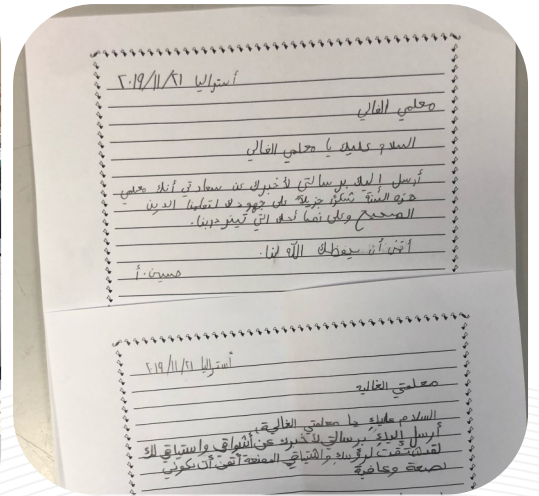 أستراليا ٢٠١٩/١١/٢١
معلمي الغالي
السلام عليك يا معلمي الغالي
أرسل إليك برسالتي لأخبرك عن سعادتي أنك معلمي
هذه السنة شكرًا جزيلا على جهودك لتعليمنا الدين
الصحيح وعلى نصائحك التي تنير دربنا.
أتمنى أن يحفظك الله لنا.
حسين.أ
أستراليا ٢١٩/١١/٢١
معلمتي الغالية
السلام عليكِ يا معلمتي الغالية،
أرسل إليكِ برسالتي لأخبرك عن أشواقي واستياقي لك
لقد اشتقت لرؤيتك واشتياقي أتمنى أن تكوني
بصحة وعافية